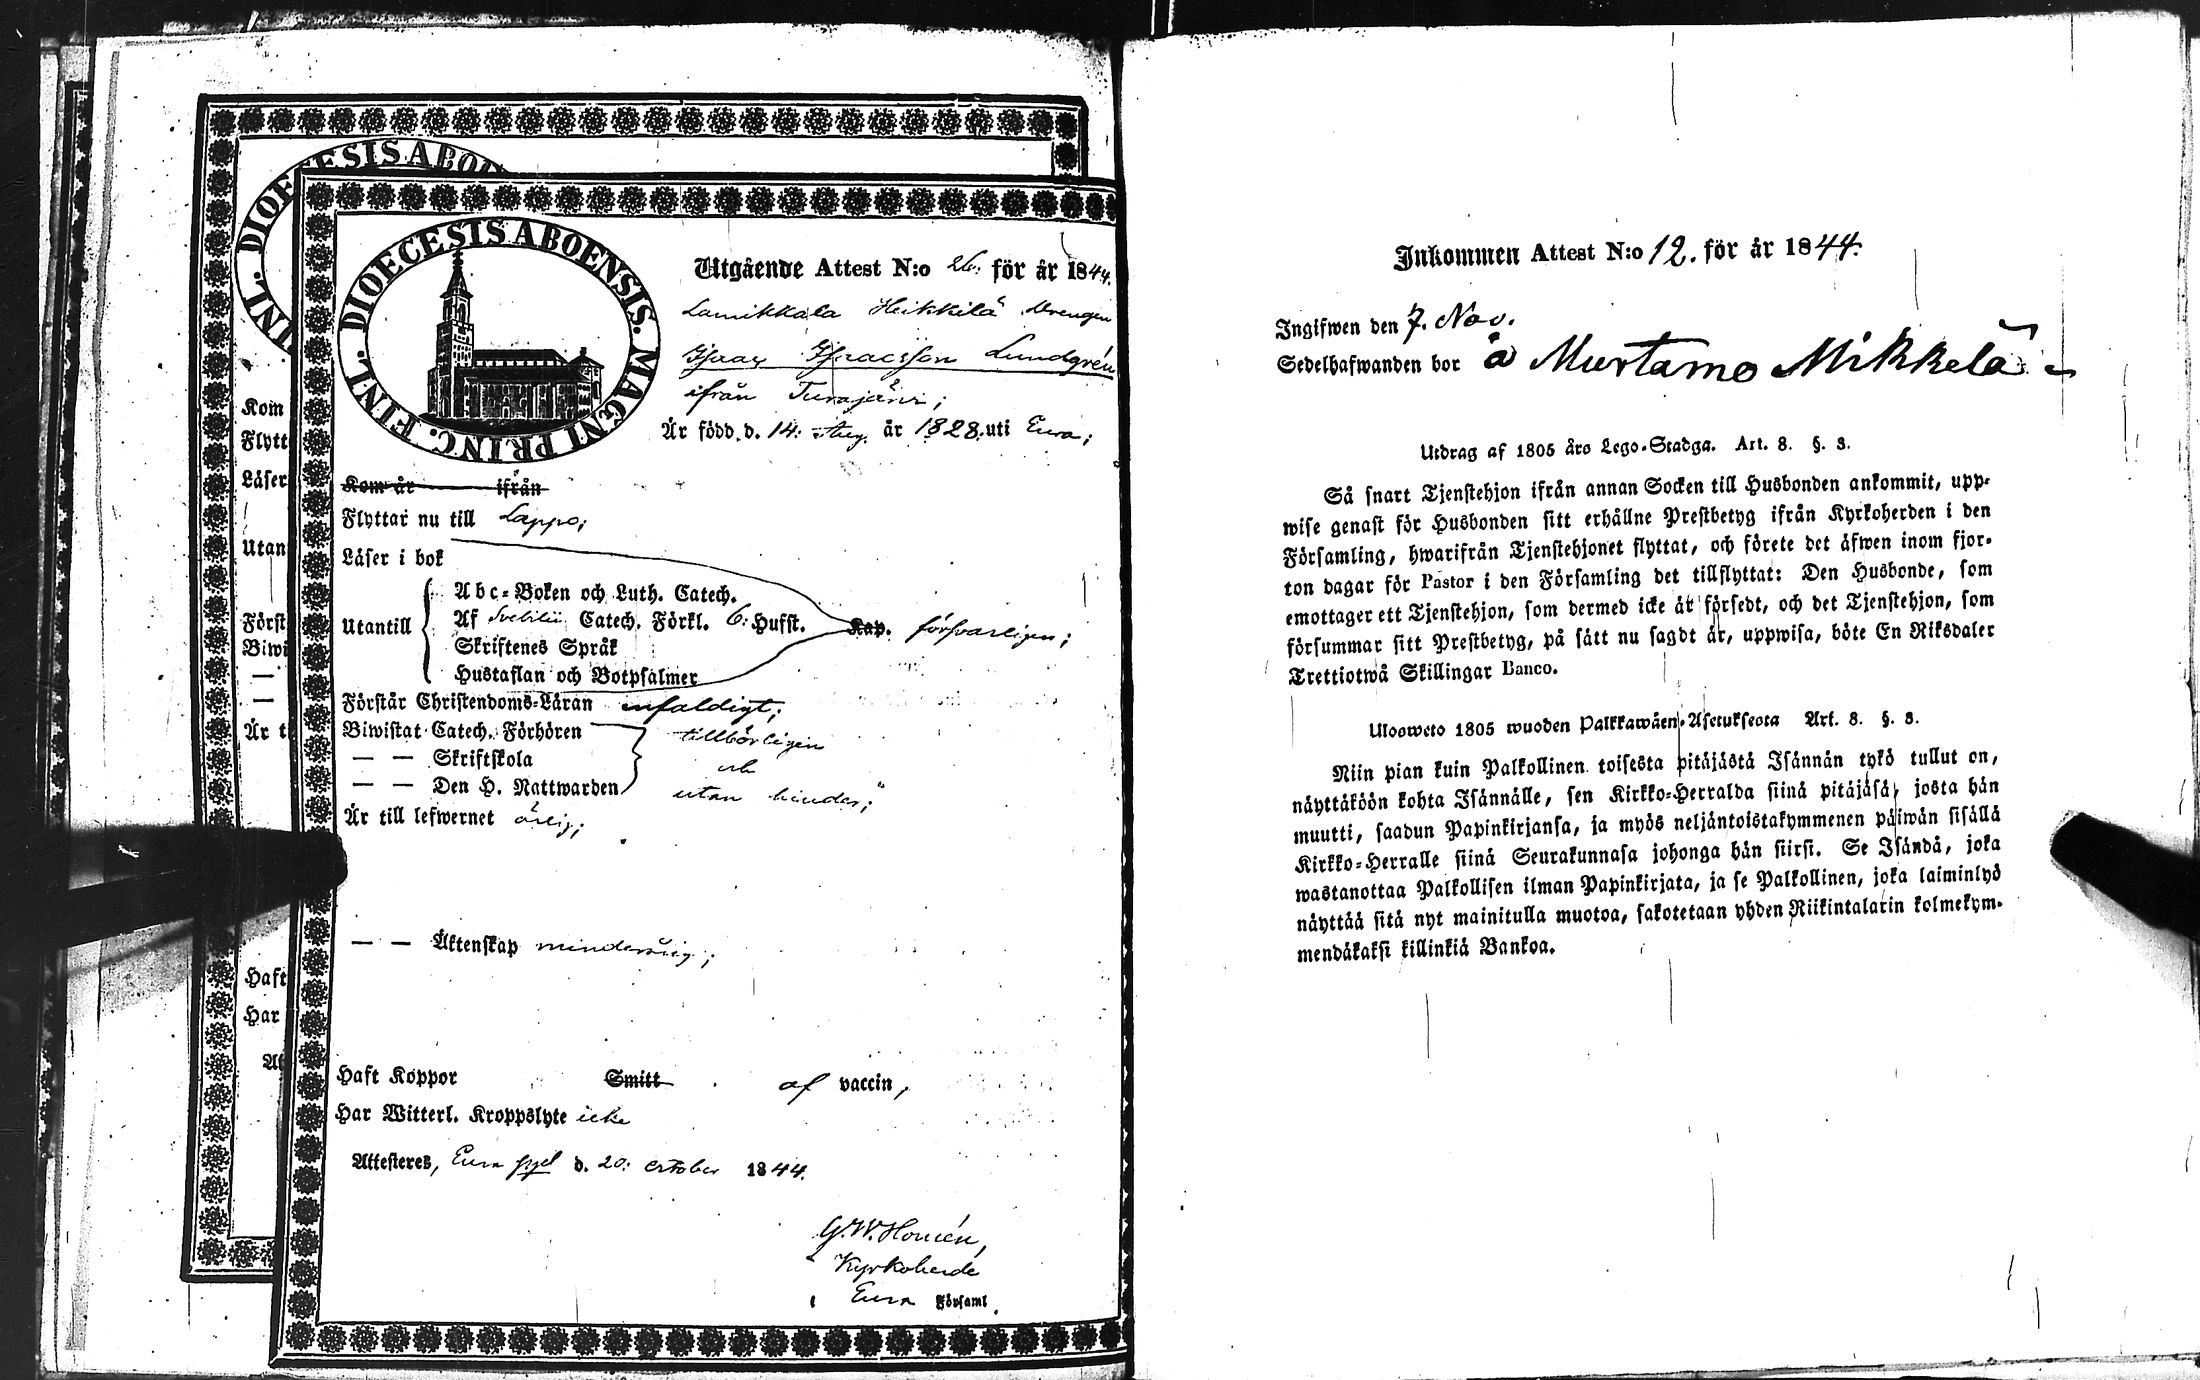 DIOECESIS ABO
FINL.
Kom
Flytt
Läser
Utan
Först
Biwi
—
—
Är t
Haft
Har
At
DIOECESIS ABOENSIS. MAGNI PRINC. FINL.
Utgående Attest N:o 26: för år 1844.
Lamikkala Heikkilä Drengen
Isaac Isaacsson Lundgrén
ifrån Turajärvi;
Är född d. 14: Aug. år 1828. uti Eura;
Kom år ifrån
Flyttar nu till Lappo;
Läser i bok
Utantill
Abc-Boken och Luth. Catech.
Af Svebilii Catech. Förkl. 6: Hufst. Kap. försvarligen;
Skriftenes Språk
Hustaflan och Botpsalmer
Förstår Christendoms-Läran enfaldigt;
Biwistat Catech. Förhören tillbörligen
— — Skriftskola och
— — Den H. Nattwarden utan hinder;
Är till lefwernet ärlig;
— — Äktenskap minderårig;
Haft Koppor Smitt af vaccin,
Har Witterl. Kroppslyte icke
Attesteres, Eura d. 20: october 1844.
G. W. Homén,
Kyrkoherde
i Eura Församl.
Inkommen Attest N:o 12. för år 1844.
Ingifwen den 7. Nov.
Sedelhafwanden bor å Murtamo Mikkelä
Utdrag af 1805 års Lego-Stadga. Art. 8. §. 3.
Så snart Tjenstehjon ifrån annan Socken till Husbonden ankommit, upp-
wise genast för Husbonden sitt erhållne Prestbetyg ifrån Kyrkoherden i den
Församling, hwarifrån Tjenstehjonet flyttat, och förete det äfwen inom fjor-
ton dagar för Pastor i den Församling det tillflyttat: Den Husbonde, som
emottager ett Tjenstehjon, som dermed icke är försedt, och det Tjenstehjon, som
försummar sitt Prestbetyg, på sätt nu sagdt är, uppwisa, böte En Riksdaler
Trettiotwå Skillingar Banco.
Ulosweto 1805 wuoden Palkkawäen-Asetuksesta Art. 8. §. 3.
Niin pian kuin Palkollinen toisesta pitäjästä Isännän tykö tullut on,
näyttäköön kohta Isännälle, sen Kirkko-Herralda siinä pitäjäsä, josta hän
muutti, saadun Papinkirjansa, ja myös neljäntoistakymmenen päiwän sisällä
Kirkko-Herralle siinä Seurakunnasa johonga hän siirsi. Se Isändä, joka
wastanottaa Palkollisen ilman Papinkirjata, ja se Palkollinen, joka laiminlyö
näyttää sitä nyt mainitulla muotoa, sakotetaan yhden Riikintalarin kolmekym-
mendäkaksi killinkiä Bankoa.